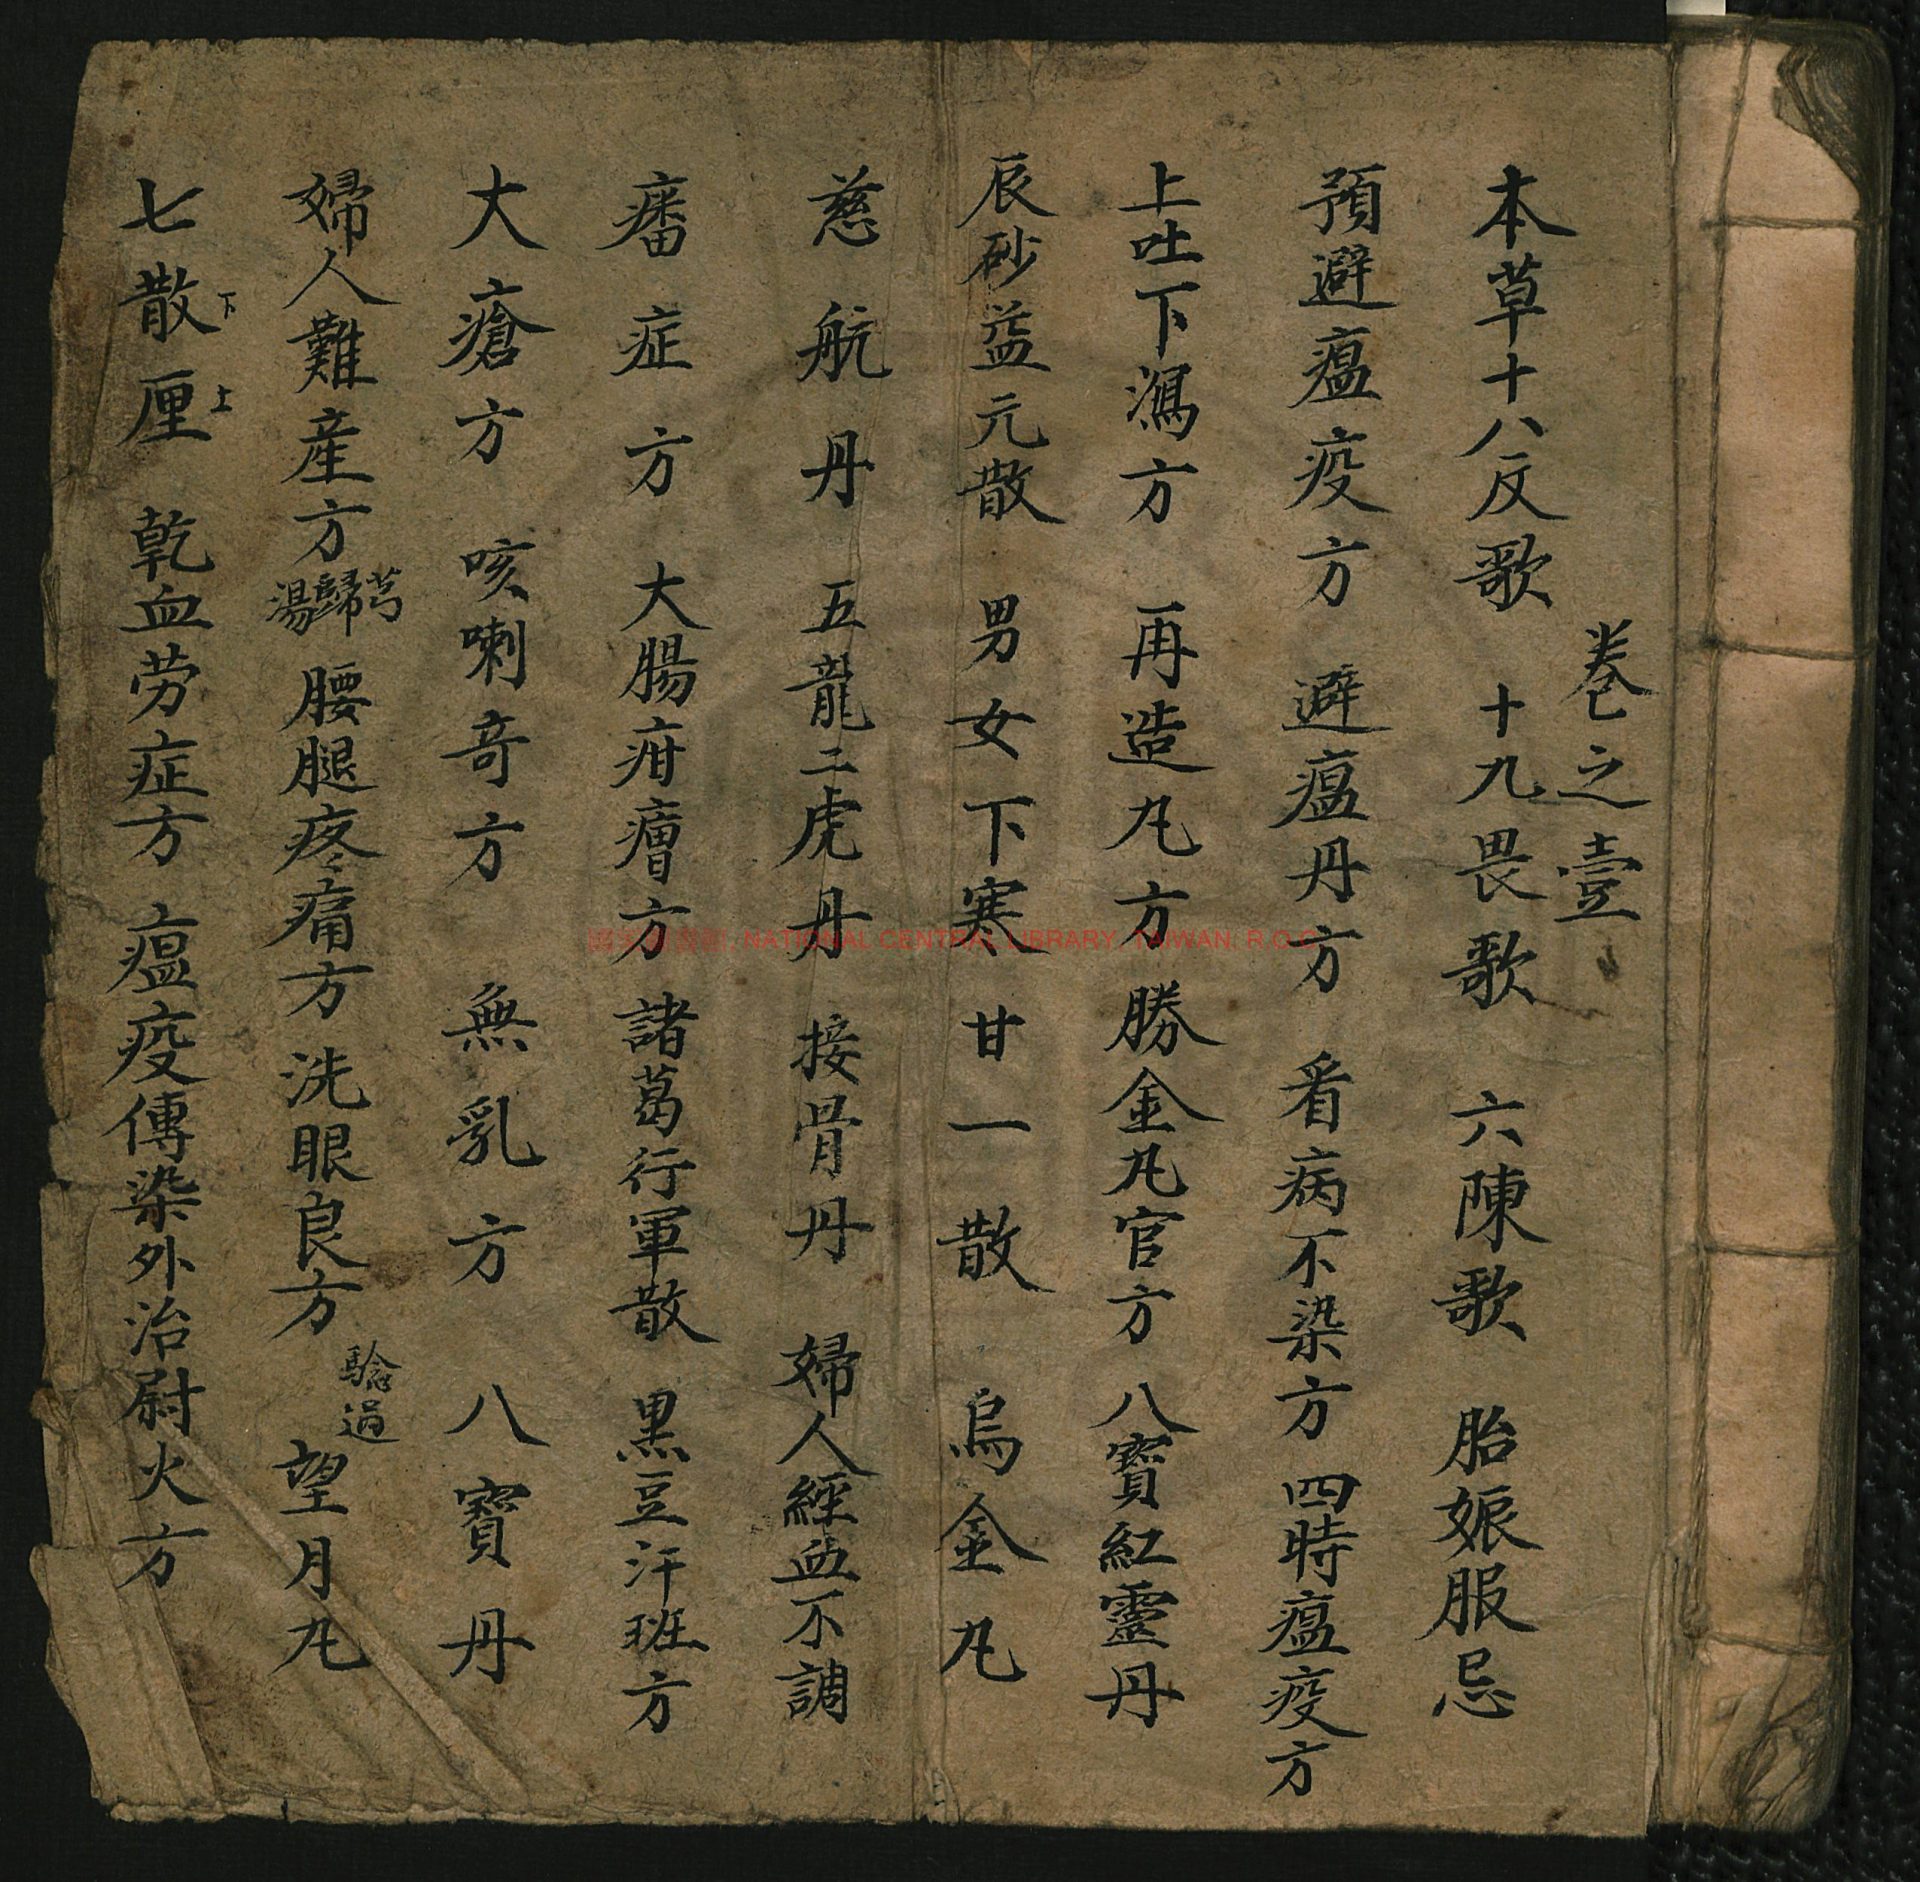 卷之壹
本草十八反歌 十九畏歌 六陳歌 胎娠服忌
預避瘟疫方 避瘟丹方 看病不染方 四時瘟疫方
上吐下瀉方 再造丸方 勝金丸官方 八寶紅靈丹
辰砂益元散 男女下寒 甘一散 烏金丸
慈航丹 五龍二虎丹 接骨丹 婦人經血不調
癗症方 大腸疳𤺺方 諸葛行軍散 黑豆汗班方
大瘡方 咳喇奇方 無乳方 八寶丹
婦人難産方 芎歸湯 腰腿疼痛方 洗眼良方 驗過 望月丸
七散下厘上 乾血劳症方 瘟疫傳染外治尉火方
國家圖書館, NATIONAL CENTRAL LIBRARY, TAIWAN, R.O.C